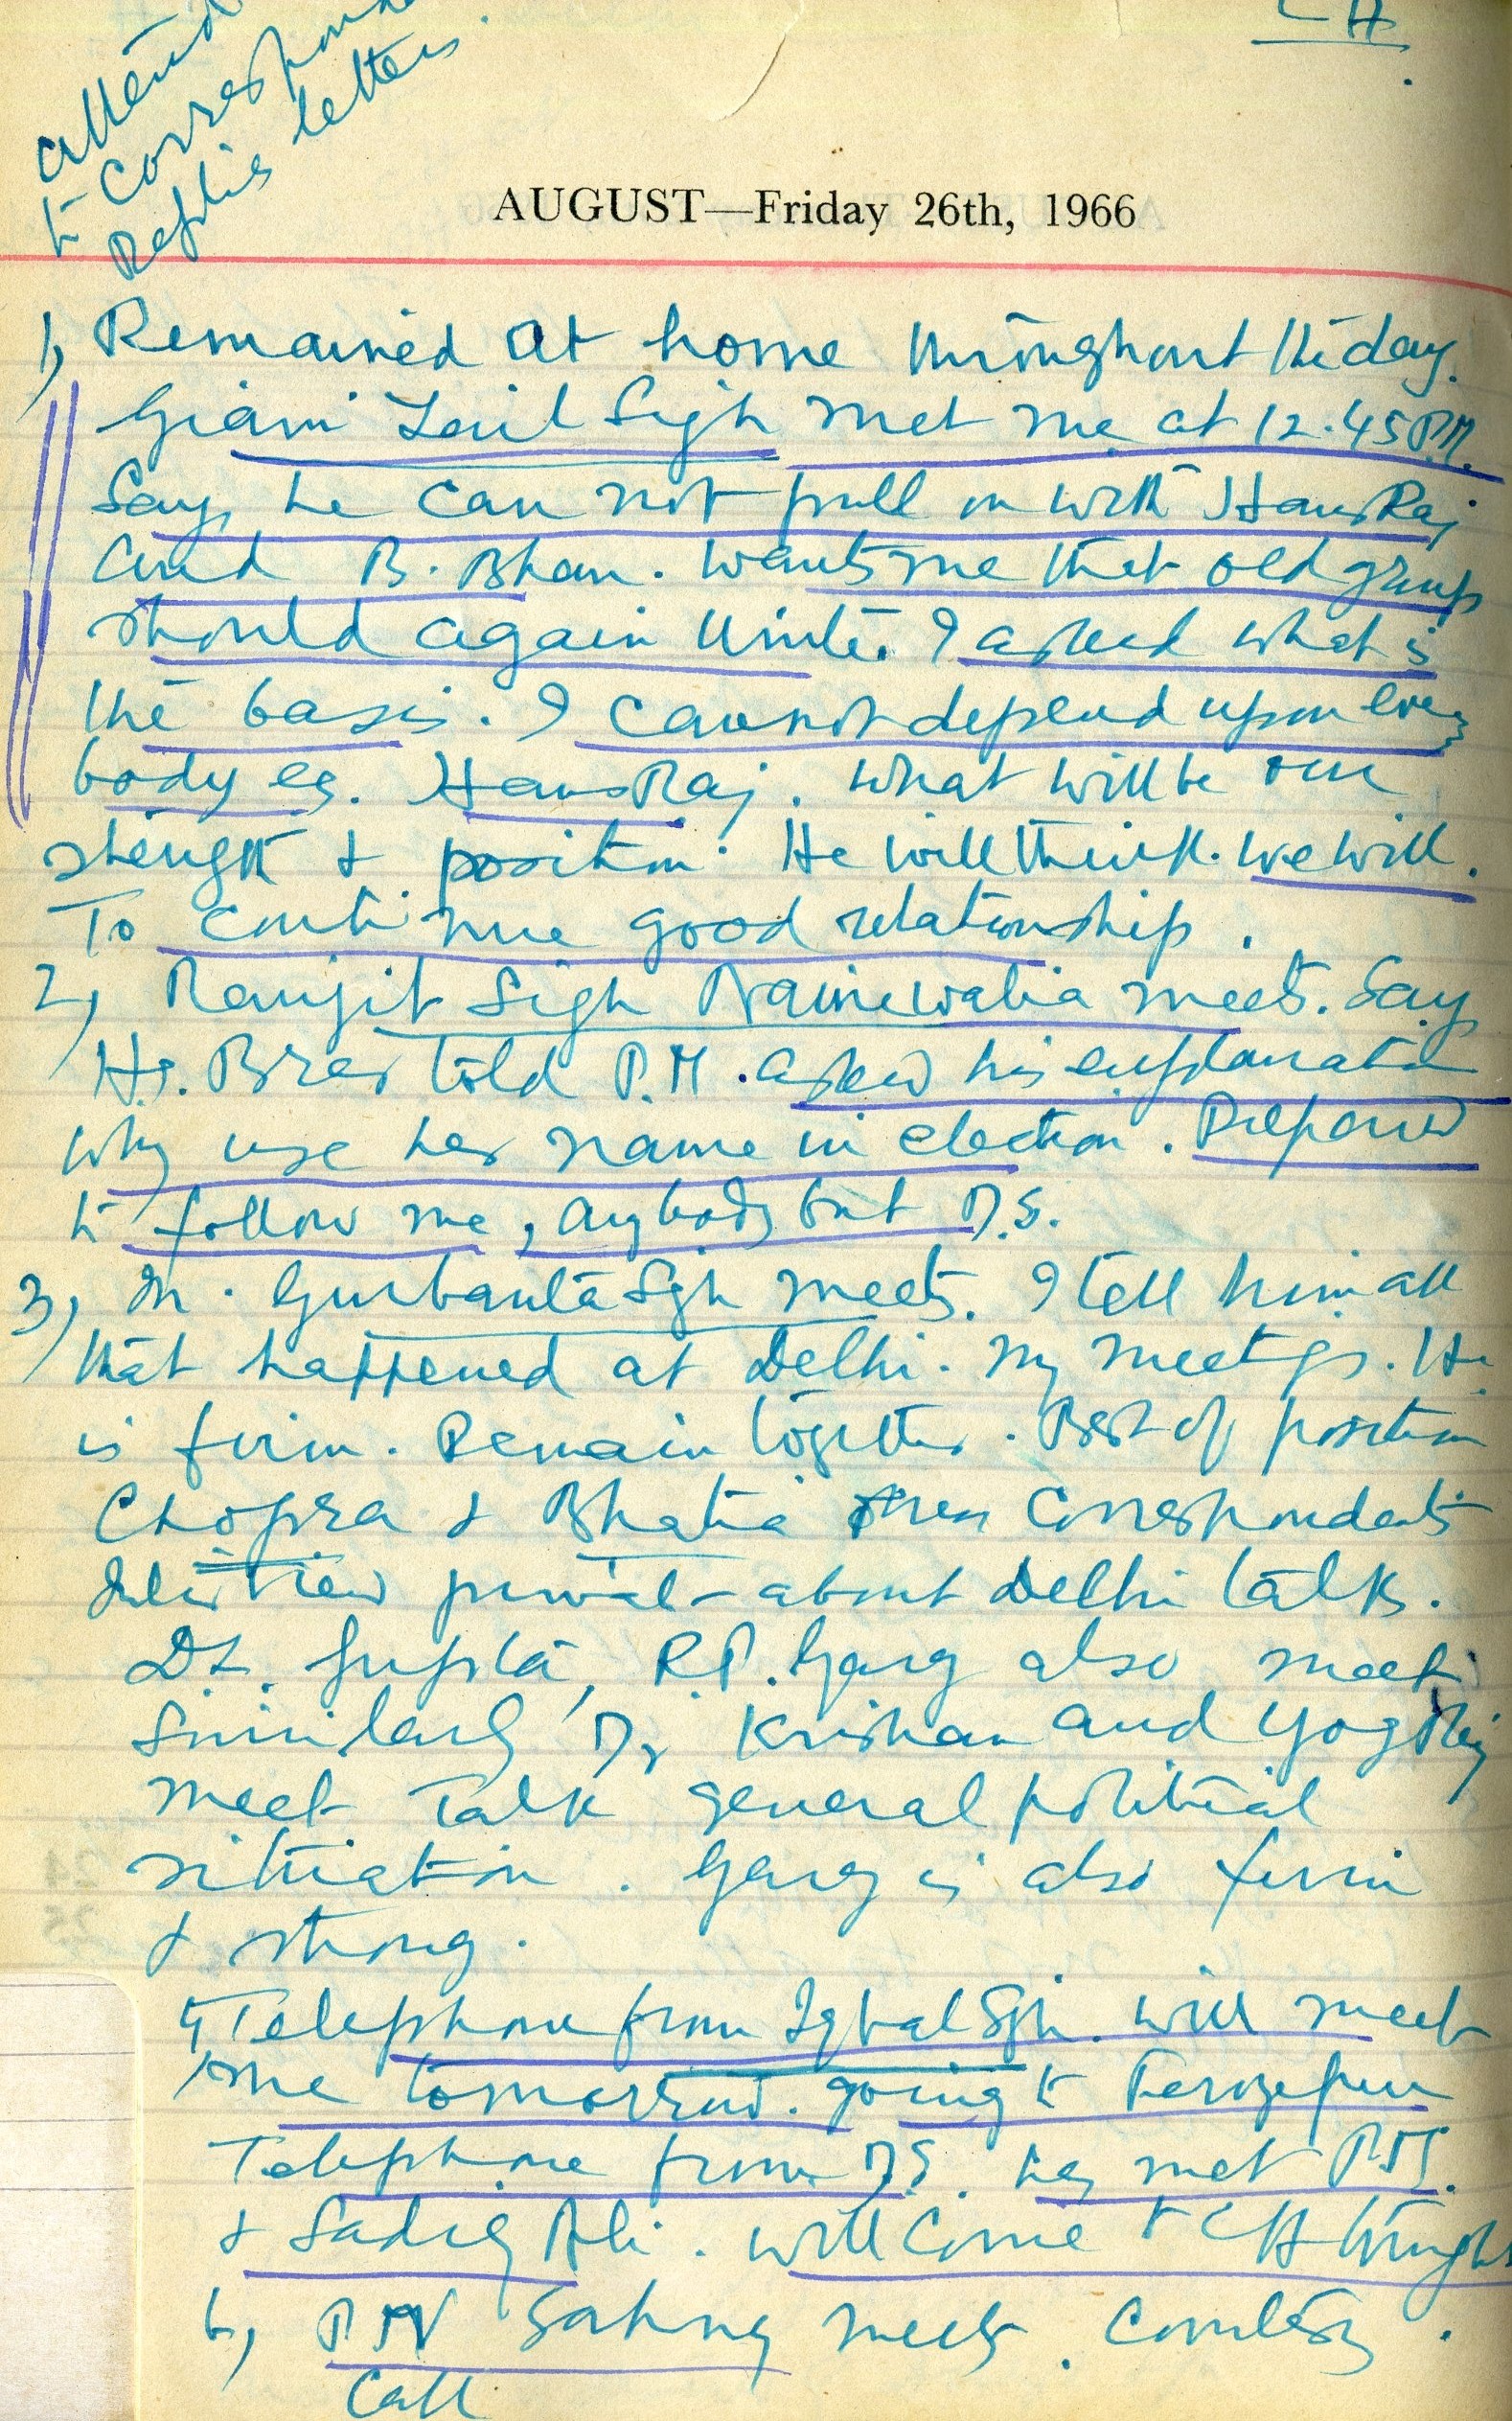 attend
to correspond
Replies letters.
CH.
AUGUST—Friday 26th, 1966
1, Remained at home throughout the day.
Giani Zail Sigh met me at 12.45 P.M.
Says he can not pull on with HansRaj
and B. Bhan. wants me that old group
should again Unite. I asked what is
the basis. I cannot depend upon every
body eg. HansRaj. what will be our
strength & position. He will think. we will.
To continue good relationship.
2, Ranjit Sigh Nainewalia meets. Says
H.S. Brar told P.M. asked his explanation
why use her name in election. Prepared
to follow me, anybody but D.S.
3, M. Gurbanta Sgh meets. I tell him all
that happened at Delhi. My meetgs. He
is firm. Remain together. Best of position
Chopra & Bhatia Press Correspondents
Interview privat about Delhi talks.
Dr. Gupta, R.P. Garg also meet
Similarly Dr Krishan and Yog Raj
meet Talk general political
situation. Garg is also firm
& strong.
4, Telephone from Iqbal Sgh. will meet
me tomorrow. going to Ferozepur
Telephone from D.S. he met P.M.
& Sadiq Ali. will come to CH tonight
6, P.N Sahny meets. Courtesy.
Call